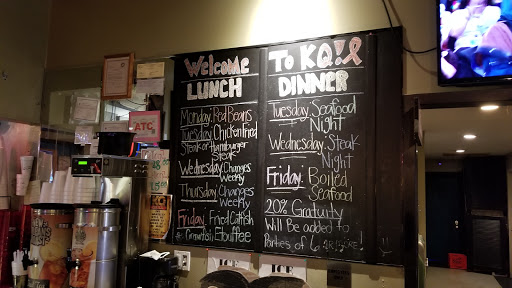 Welcome
LUNCH
Monday: Red Beans
Tuesday: Chicken Fried
Steak or Hamburger
Steak
Wednesday: Changes
Weekly
Thursday: Changes
Weekly
Friday: Fried Catfish
Crawfish Etouffee
To KQ!
DINNER
Tuesday: Seafood
Night
Wednesday: Steak
Night
Friday: Boiled
Seafood
20% Gratuity
Will Be added to
Parties of 6 or more!
ATC
ICE
ICE